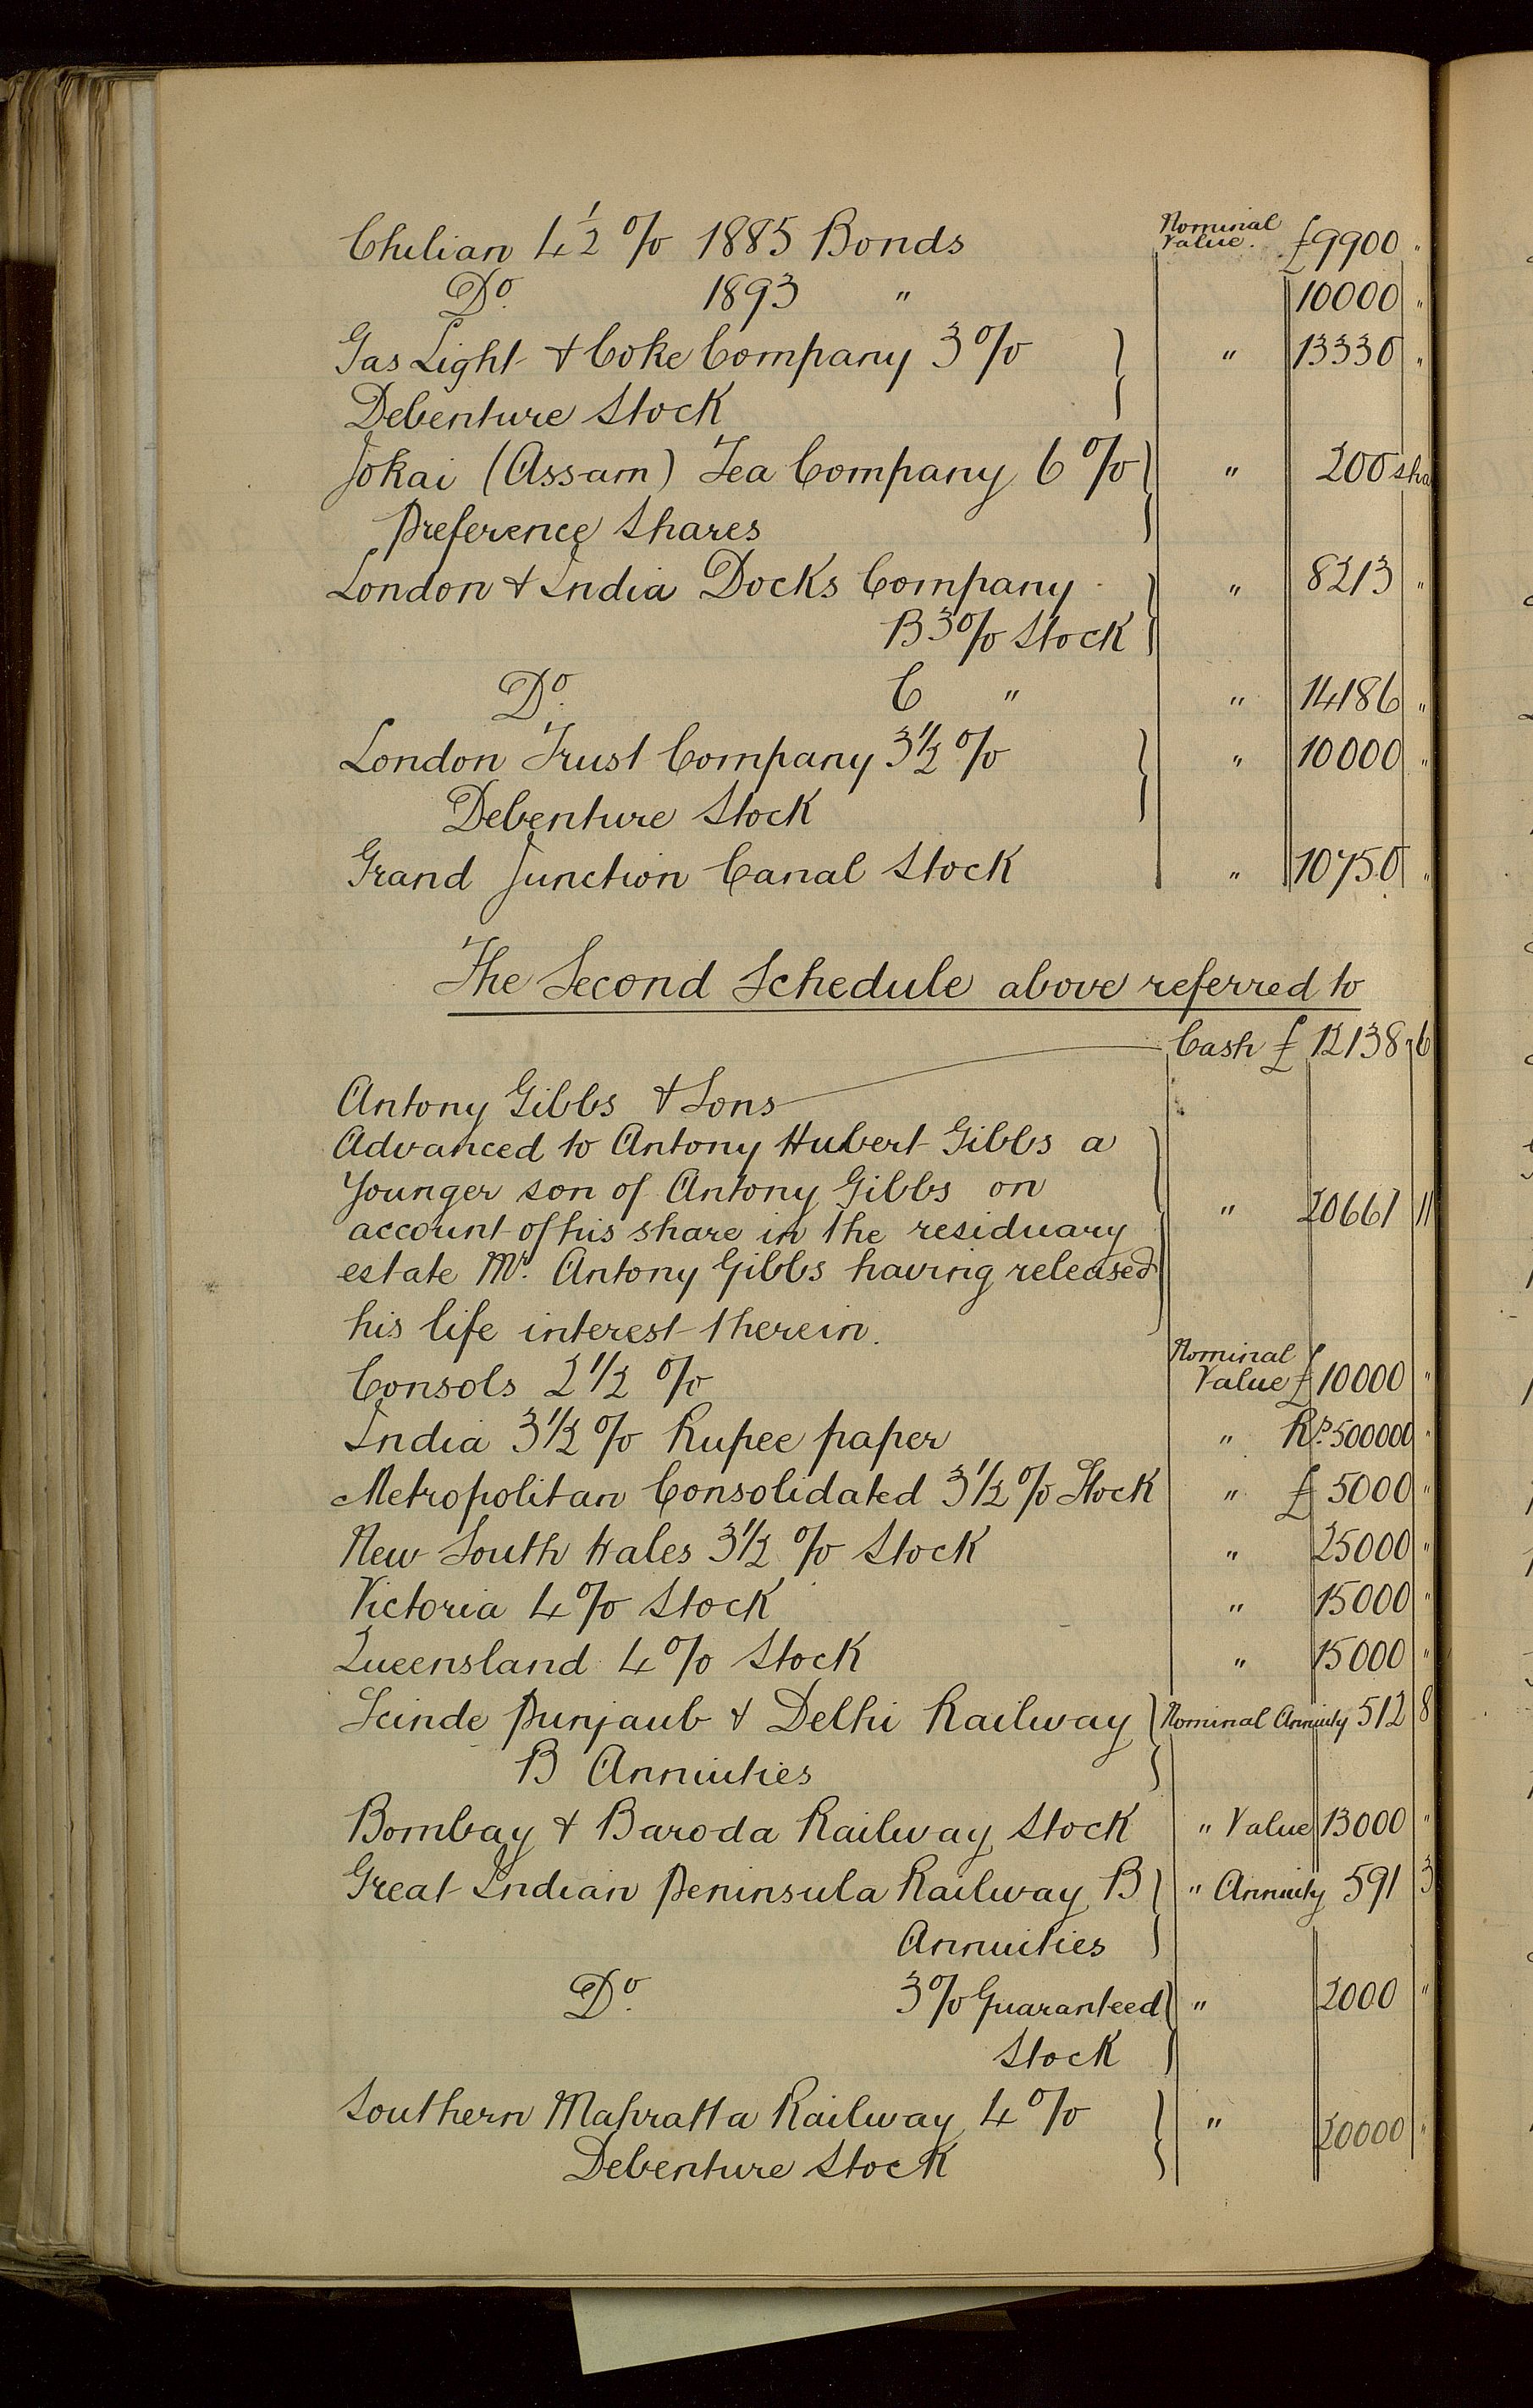 Chilian 4½% 1885 Bonds Nominal Value. £9900 "
Do. 1893 " 10000 "
Gas Light & Coke Company 3% " 13330 "
Debenture Stock
Jokai (Assam) Tea Company 6% " 200 sha
Preference Shares
London & India Docks Company " 8213 "
B 3% Stock
Do. C " " 14186 "
London Trust Company 3½% " 10000 "
Debenture Stock
Grand Junction Canal Stock " 10750 "
The Second Schedule above referred to
Cash £ 12138 " 6
Antony Gibbs & Sons
Advanced to Antony Hubert Gibbs a
Younger son of Antony Gibbs on
account of his share in the residuary " 20661 11
estate Mr. Antony Gibbs having released
his life interest therein.
Consols 2½% Nominal Value £ 10000 "
India 3½% Rupee paper " Rs. 500000 "
Metropolitan Consolidated 3½% Stock " £ 5000 "
New South Wales 3½% Stock " 25000 "
Victoria 4% Stock " 15000 "
Queensland 4% Stock " 15000 "
Scinde Punjaub & Delhi Railway Nominal Annuity 512 8
B Annuities
Bombay & Baroda Railway Stock " Value 13000 "
Great Indian Peninsula Railway B " Annuity 591 3
Annuities
Do. 3% Guaranteed " 2000 "
Stock
Southern Mahratta Railway 4% " 20000 "
Debenture Stock